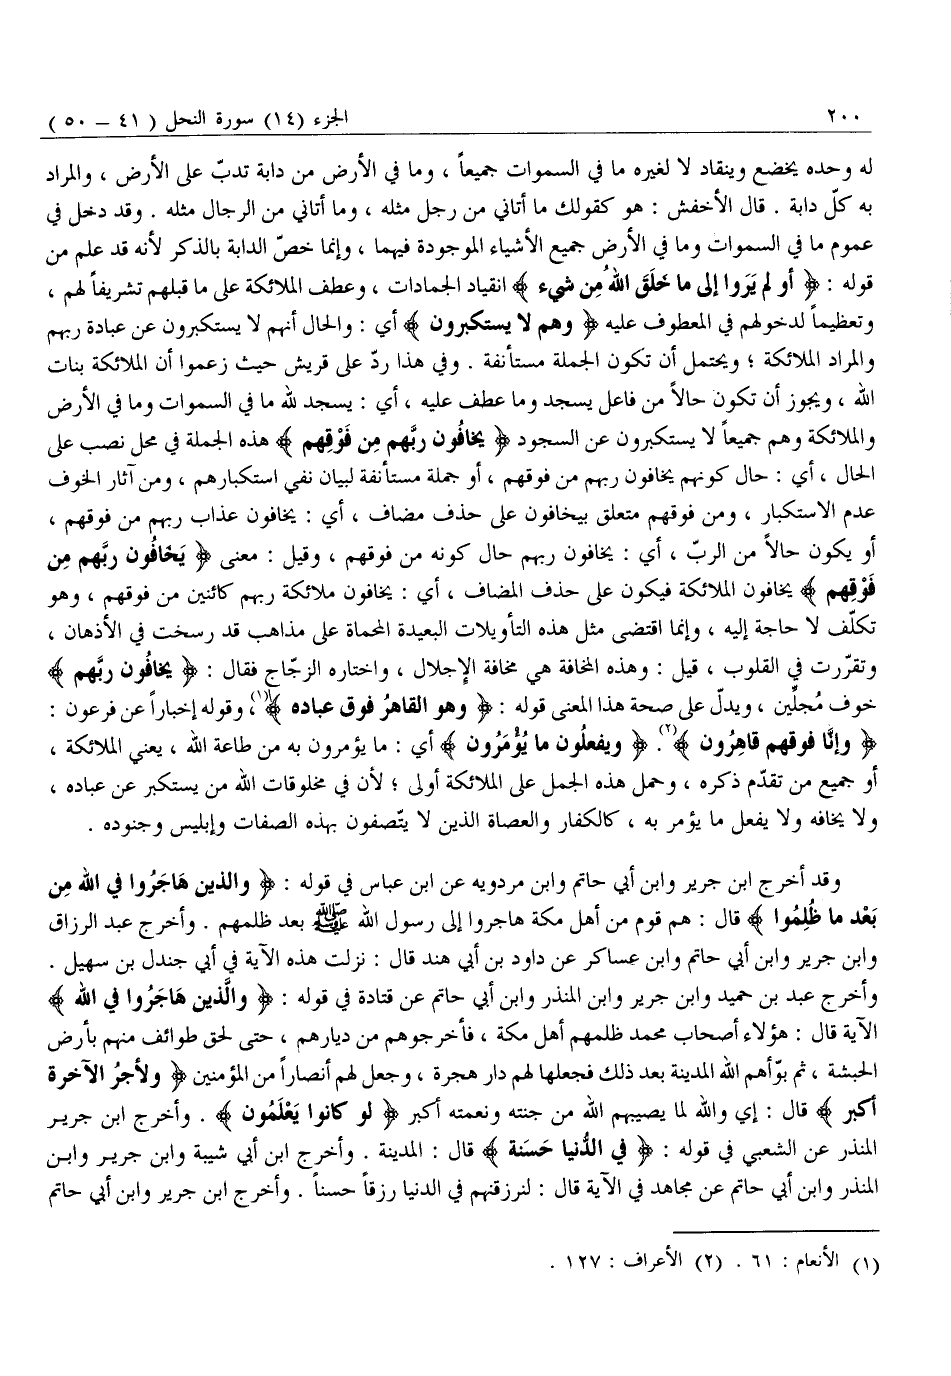 ٢٠٠ الجزء (١٤) سورة النحل ( ٤١ – ٥٠ )
له وحده يخضع وينقاد لا لغيره ما في السموات جميعاً ، وما في الأرض من دابة تدبّ على الأرض ، والمراد
به كلّ دابة . قال الأخفش : هو كقولك ما أتاني من رجل مثله ، وما أتاني من الرجال مثله . وقد دخل في
عموم ما في السموات وما في الأرض جميع الأشياء الموجودة فيهما ، وإنما خصّ الدابة بالذكر لأنه قد علم من
قوله : ﴿ أو لم يَروا إلى ما خَلَقَ اللهُ مِن شيء ﴾ انقياد الجمادات ، وعطف الملائكة على ما قبلهم تشريفاً لهم ،
وتعظيماً لدخولهم في المعطوف عليه ﴿ وهم لا يستكبرون ﴾ أي : والحال أنهم لا يستكبرون عن عبادة ربهم
والمراد الملائكة ؛ ويحتمل أن تكون الجملة مستأنفة . وفي هذا ردّ على قريش حيث زعموا أن الملائكة بنات
الله ، ويجوز أن تكون حالاً من فاعل يسجد وما عطف عليه ، أي : يسجد لله ما في السموات وما في الأرض
والملائكة وهم جميعاً لا يستكبرون عن السجود ﴿ يخافُون ربَّهم مِن فَوْقِهم ﴾ هذه الجملة في محل نصب على
الحال ، أي : حال كونهم يخافون ربهم من فوقهم ، أو جملة مستأنفة لبيان نفي استكبارهم ، ومن آثار الخوف
عدم الاستكبار ، ومن فوقهم متعلق بيخافون على حذف مضاف ، أي : يخافون عذاب ربهم من فوقهم ،
أو يكون حالاً من الربّ ، أي : يخافون ربهم حال كونه من فوقهم ، وقيل : معنى ﴿ يَخَافُون ربَّهم مِن
فَوْقِهم ﴾ يخافون الملائكة فيكون على حذف المضاف ، أي : يخافون ملائكة ربهم كائنين من فوقهم ، وهو
تكلّف لا حاجة إليه ، وإنما اقتضى مثل هذه التأويلات البعيدة المحماة على مذاهب قد رسخت في الأذهان ،
وتقرّرت في القلوب ، قيل : وهذه المخافة هي مخافة الإجلال ، واختاره الزجّاج فقال : ﴿ يخافُون ربَّهم ﴾
خوف مُجلِّين ، ويدلّ على صحة هذا المعنى قوله : ﴿ وهو القاهرُ فوق عباده ﴾(١)، وقوله إخباراً عن فرعون :
﴿ وإنَّا فوقهم قاهِرُون ﴾(٢). ﴿ ويفعلُون ما يُؤْمَرُون ﴾ أي : ما يؤمرون به من طاعة الله ، يعني الملائكة ،
أو جميع من تقدّم ذكره ، وحمل هذه الجمل على الملائكة أولى ؛ لأن في مخلوقات الله من يستكبر عن عباده ،
ولا يخافه ولا يفعل ما يؤمر به ، كالكفار والعصاة الذين لا يتّصفون بهذه الصفات وإبليس وجنوده .
وقد أخرج ابن جرير وابن أبي حاتم وابن مردويه عن ابن عباس في قوله : ﴿ والذين هَاجَرُوا في الله مِن
بَعْد ما ظُلِمُوا ﴾ قال : هم قوم من أهل مكة هاجروا إلى رسول الله ﷺ بعد ظلمهم . وأخرج عبد الرزاق
وابن جرير وابن أبي حاتم وابن عساكر عن داود بن أبي هند قال : نزلت هذه الآية في أبي جندل بن سهيل .
وأخرج عبد بن حميد وابن جرير وابن المنذر وابن أبي حاتم عن قتادة في قوله : ﴿ والَّذين هَاجَرُوا في الله ﴾
الآية قال : هؤلاء أصحاب محمد ظلمهم أهل مكة ، فأخرجوهم من ديارهم ، حتى لحق طوائف منهم بأرض
الحبشة ، ثم بوّأهم الله المدينة بعد ذلك فجعلها لهم دار هجرة ، وجعل لهم أنصاراً من المؤمنين ﴿ ولأجرُ الآخرة
أكبر ﴾ قال : إي والله لما يصيبهم الله من جنته ونعمته أكبر ﴿ لو كانوا يَعْلَمُون ﴾ . وأخرج ابن جرير
المنذر عن الشعبي في قوله : ﴿ في الدُّنيا حَسَنة ﴾ قال : المدينة . وأخرج ابن أبي شيبة وابن جرير وابن
المنذر وابن أبي حاتم عن مجاهد في الآية قال : لنرزقنهم في الدنيا رزقاً حسناً . وأخرج ابن جرير وابن أبي حاتم
(١) الأنعام : ٦١ . (٢) الأعراف : ١٢٧ .